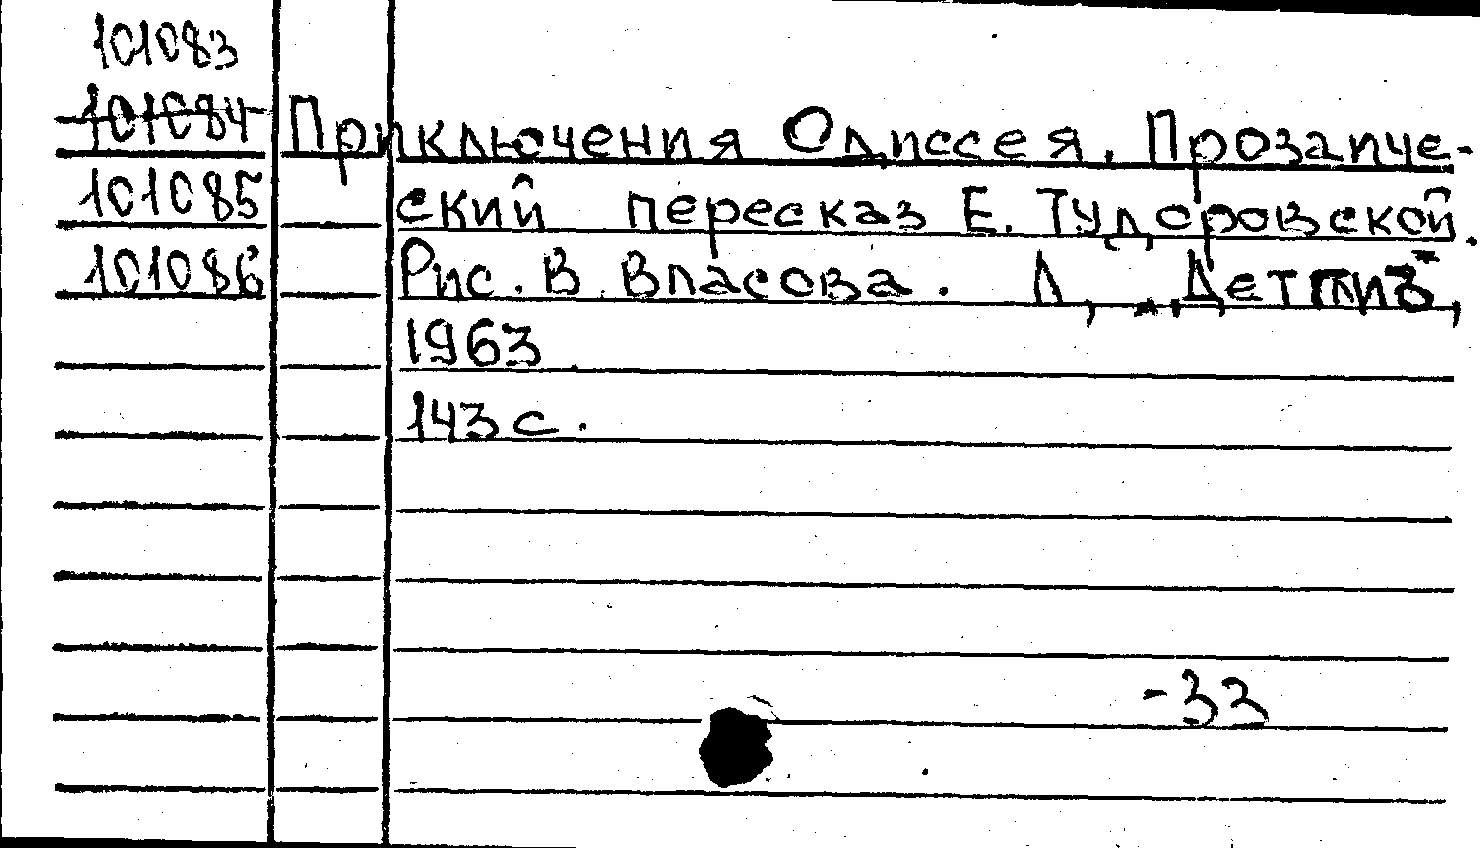 101083
101084 Приключения Одиссея. Прозаиче-
101085 ский пересказ Е. Тудоровской.
101086 Рис. В. Власова. Л, „Детгиз",
1963
143 с.
-33